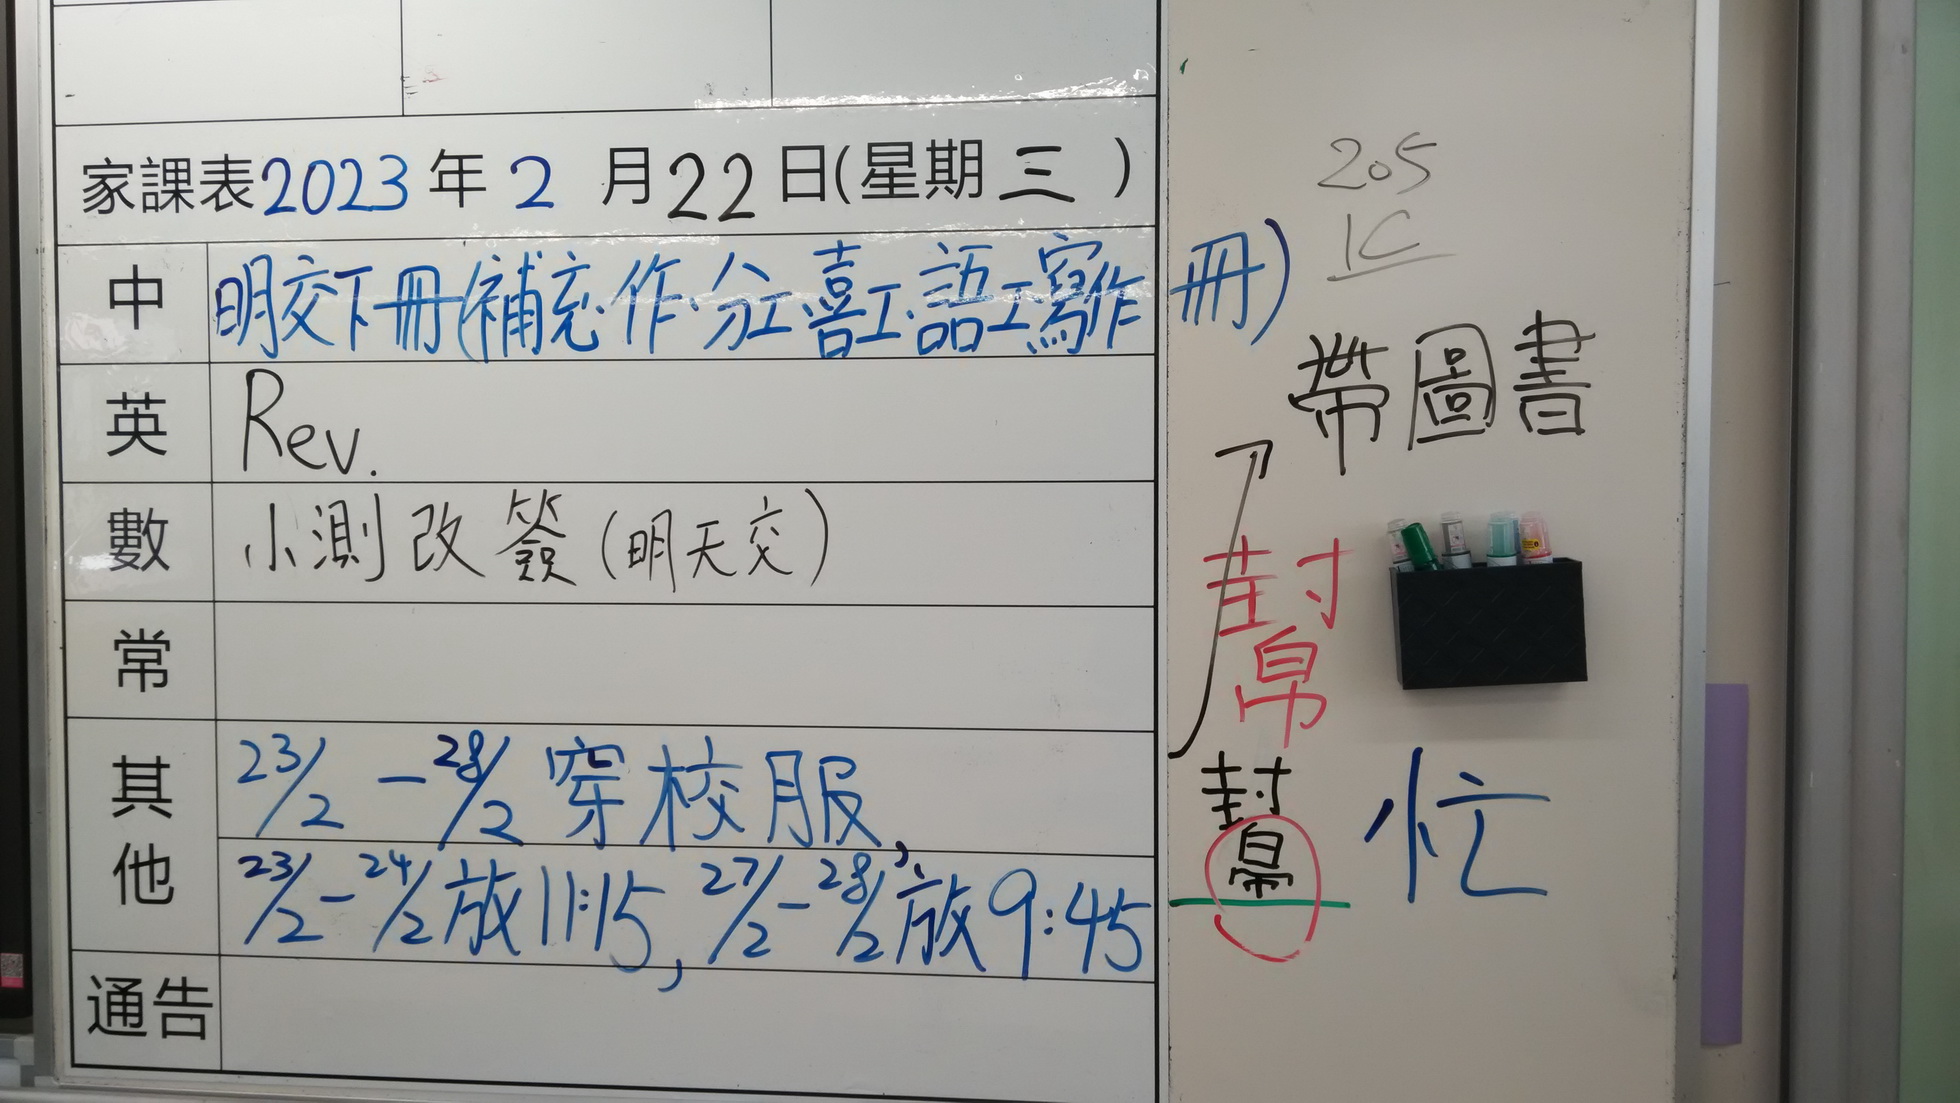 家課表2023年2月22日(星期三)
中 明交下冊(補充.作.分工.喜工.語工.寫作冊)
英 Rev.
數 小測改簽(明天交)
常
其他 23/2-28/2穿校服,
23/2-24/2放11:15, 27/2-28/2放9:45
通告
205
1C
帶圖書
封
帛
封
忙